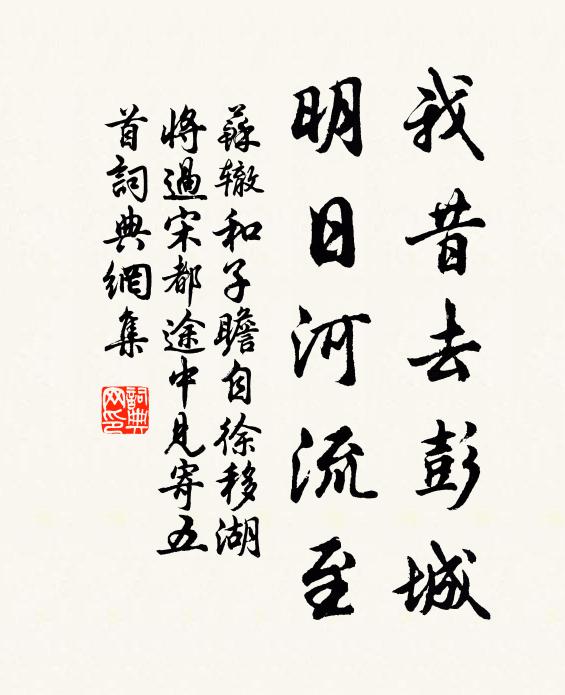 我昔去彭城
明日河流至
蘇轍和子瞻自徐移湖
將過宋都途中見寄五
首詞典網集
詞典网印